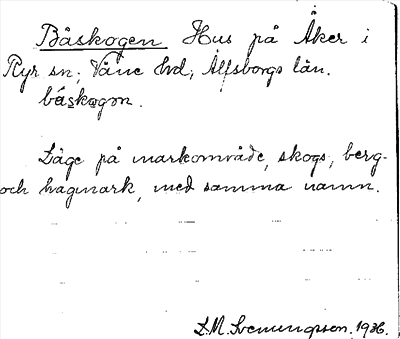 Båskogen Hus på Åker i
Ryr sn, Väne hd, Älfsborgs län.
båskogon.
Läge på markområde, skogs, berg-
och hagmark, med samma namn.
L.M. Svenungsson. 1936.